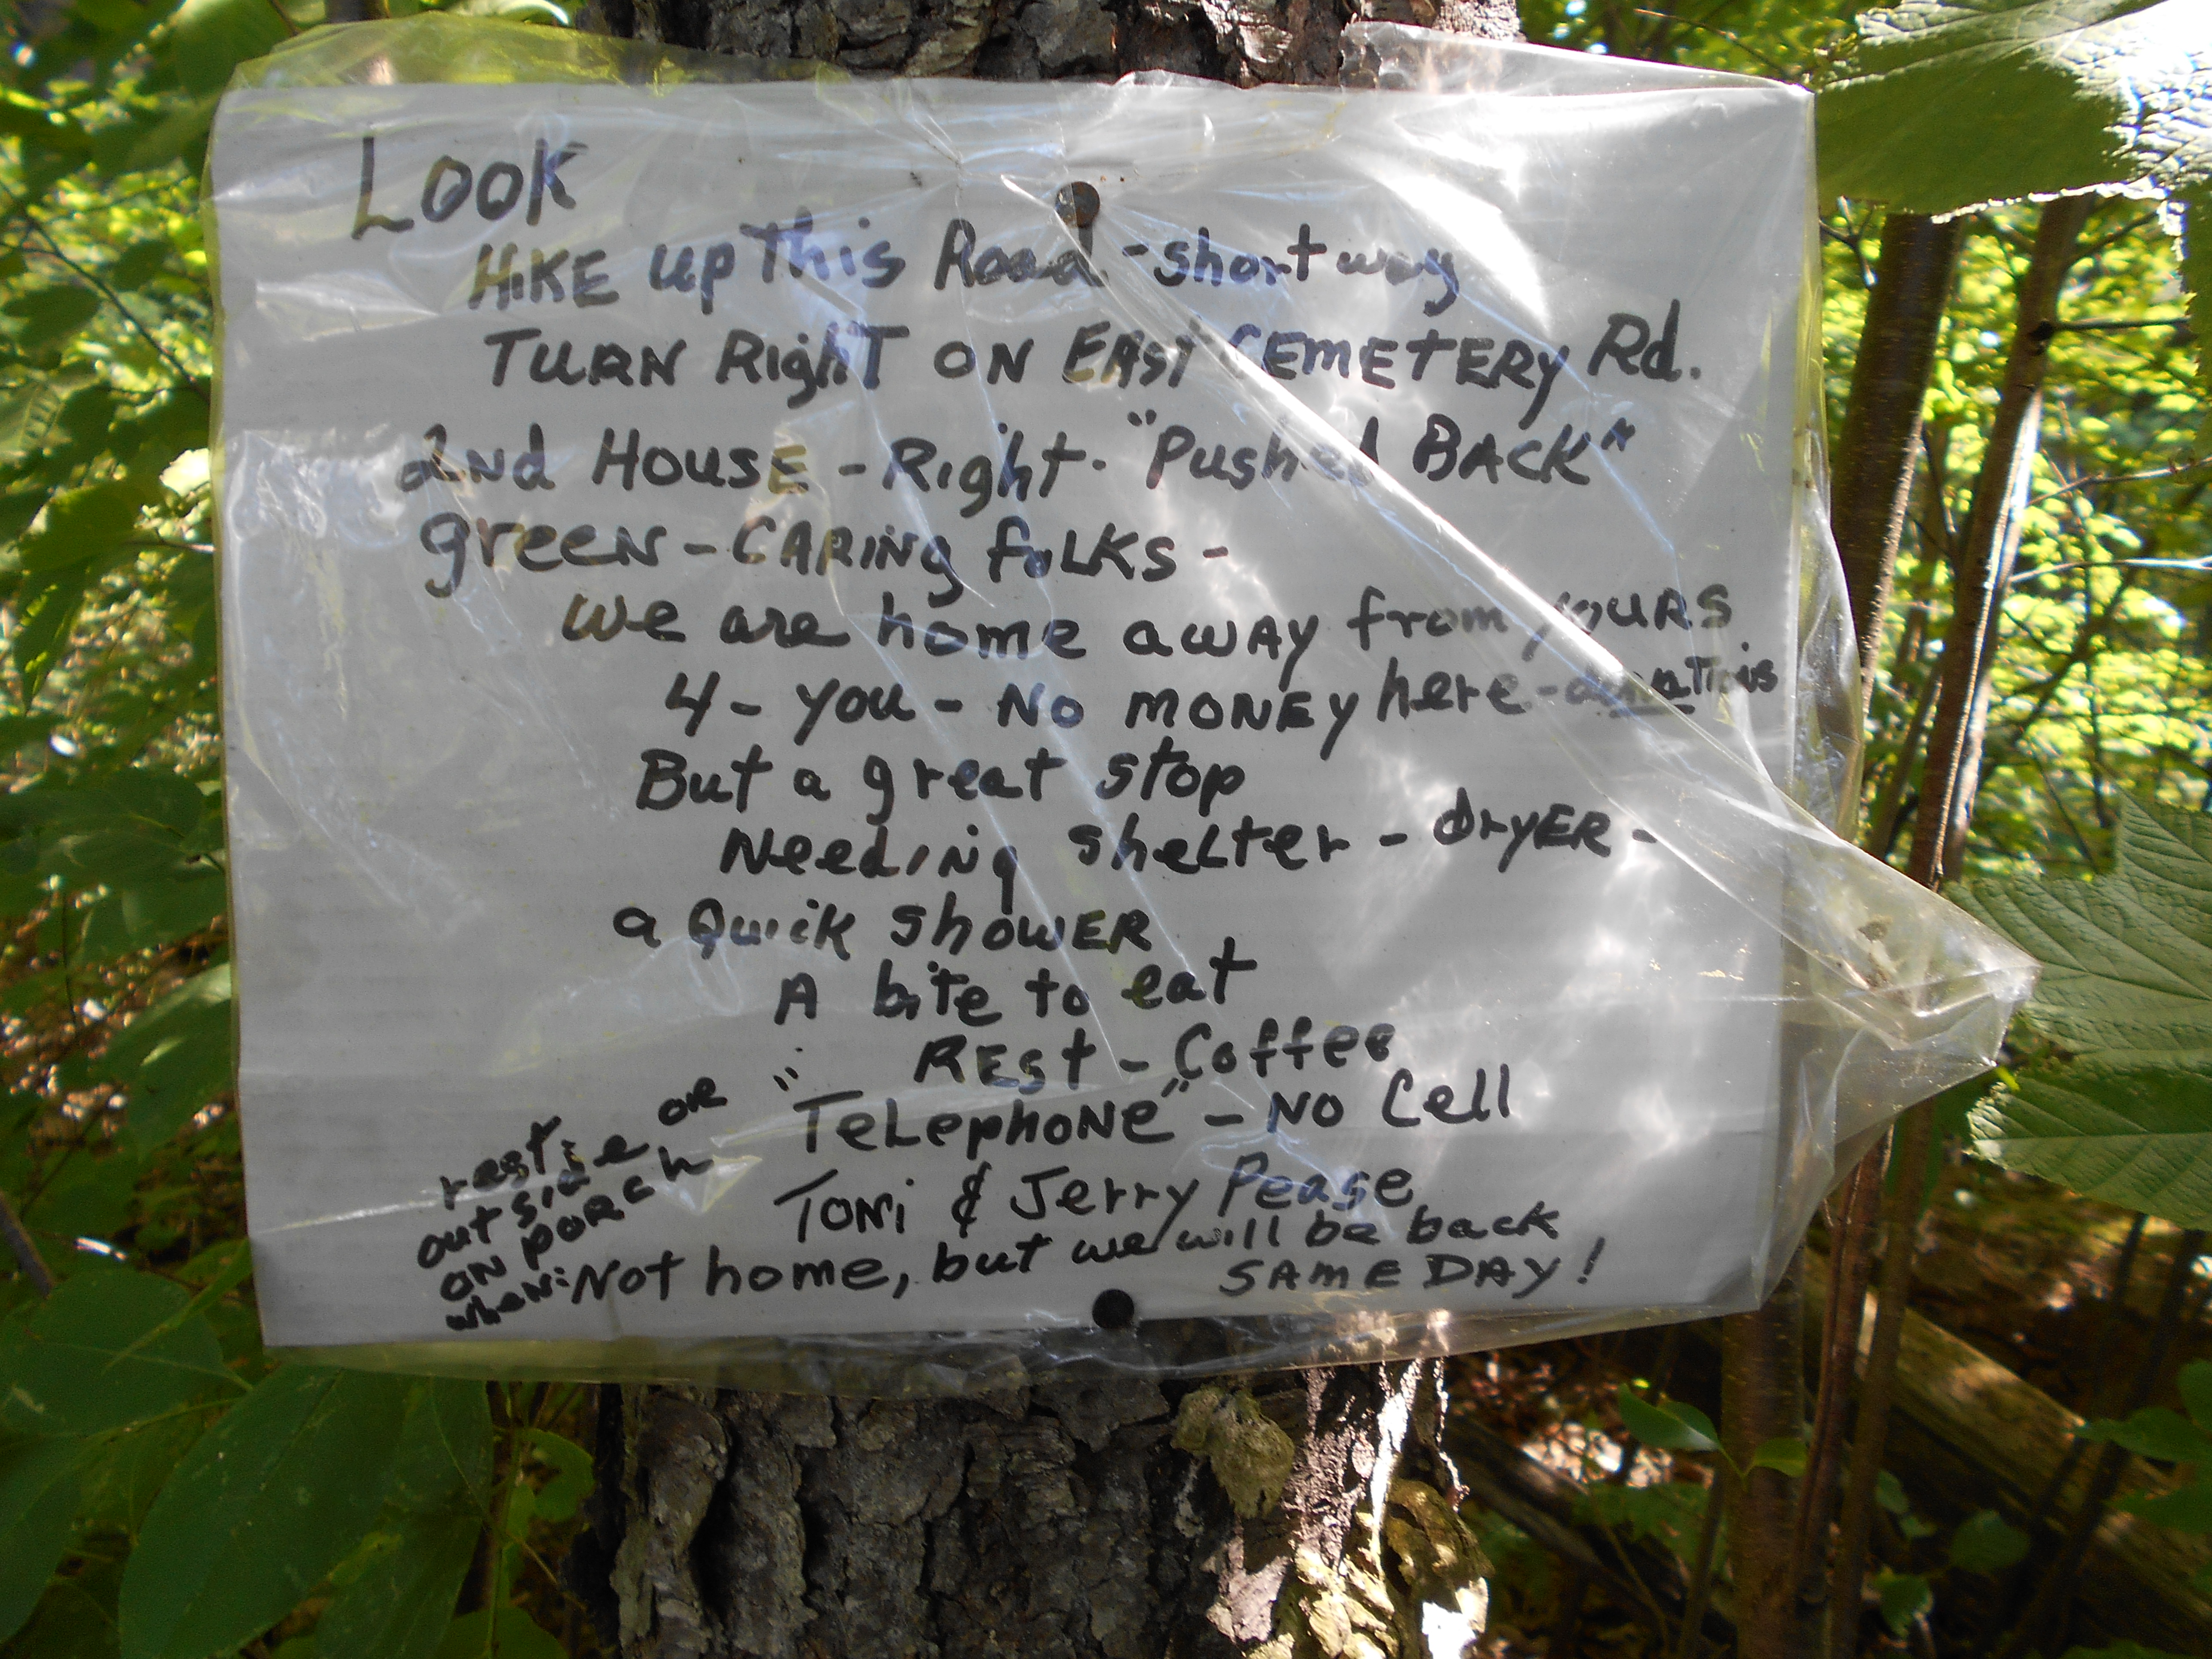 Look
HIKE up This Road - short way
TURN Right ON EAST CEMETERY Rd.
2nd HOUSE - Right - "Pushed BACK"
green - CARING folks -
We are home away from yours
4 - you - NO MONEY here - donations
But a great stop
Needing shelter - dryER -
a Quick shower
A bite to eat
REst - Coffee
"TeLephone" - NO Cell
Toni & Jerry Pease
Not home, but we will be back
SAME DAY!
rest or
outside
on porch
when: